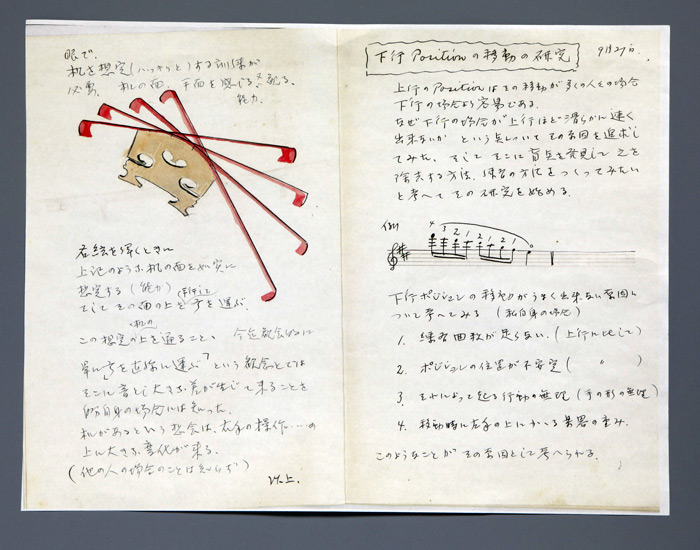 眼で.
机を想定(ハッキリと)する訓練が
必要. 机の面. 平面を感じる
能力.
各絃を弾くときに
上記のように机の面を如実に
想定する(能力)
そしてその面の上を弓を運ぶ.
この想定の机の上を通ること、今迄観念的に
単に弓を直線に運ぶ〃という観念とでは
そこに音として大きな差が生じて来ることを
的自身の場合には知った.
机があるという想念は、右手の操作....の
上に大きな変化が来る.
(他の人の場合のことは知らず)
以上.
下行Positionの移動の研究
9月27日.
上行のPositionはその移動が多くの人々の場合
下行の場合より容易である.
なぜ下行の場合が上行ほど滑らかに速く
出来ないか という点についてその原因を追求し
てみた. そして そこに盲点を発見して 之を
除去する方法、練習の方法をつくってみたい
と考へて その研究を始める.
例
4 3 2 1 2 1 2 1 0
下行ポジションの移動がうまく出来ない原因に
ついて考へてみる (私自身の場合)
1. 練習回数が足らない. (上行に比して)
2. ポジションの位置が不安定 ( 〃 )
3. それによって起る行動の無理 (手の形の無理)
4. 移動時に左手の上にかゝる楽器の重み.
このようなことが その原因として考へられる.